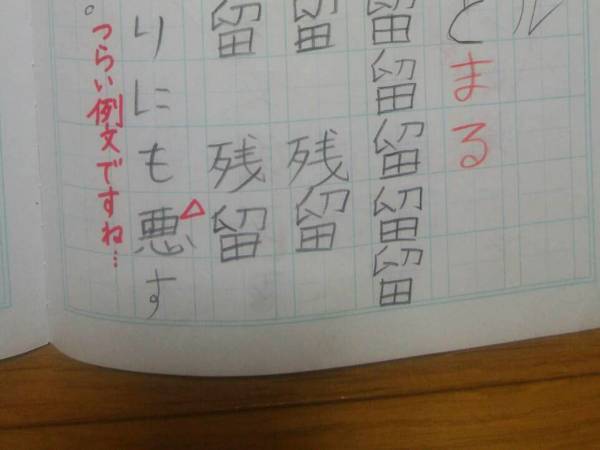 ル
とまる
留留留留留
留 残留
留 残留
りにも悪す
つらい例文ですね…
。